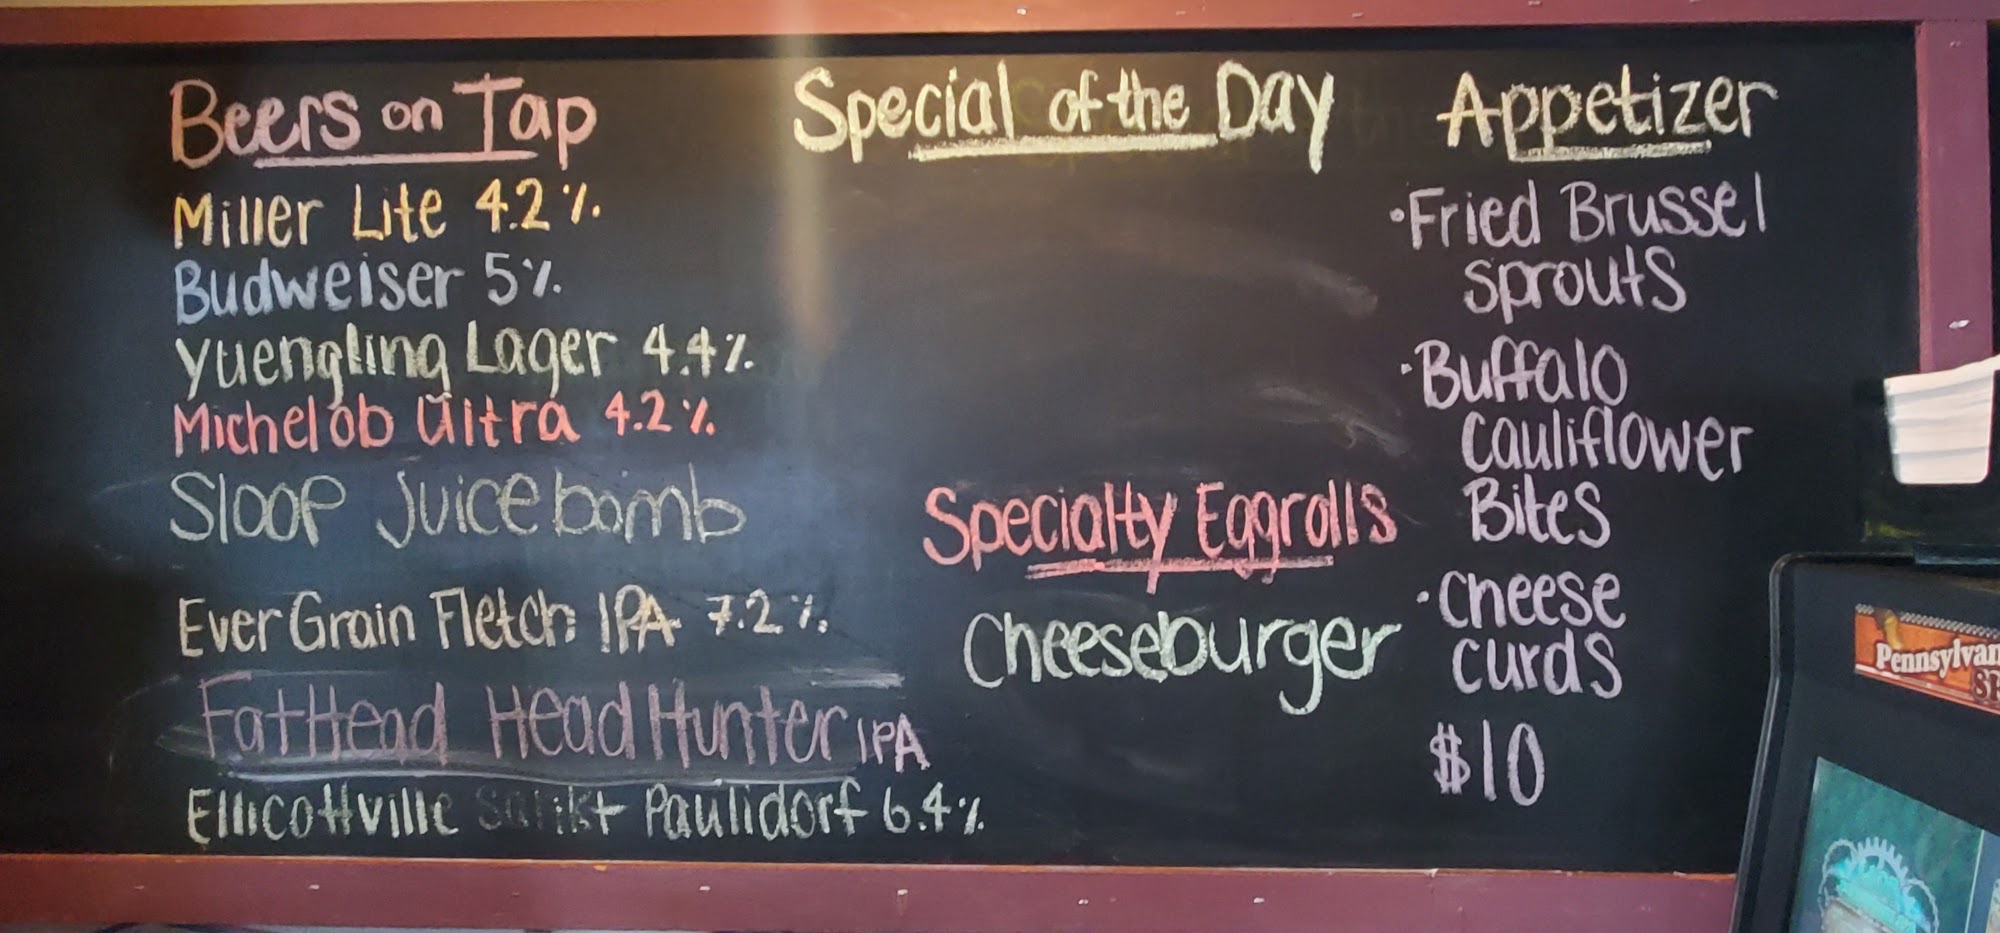 Beers on Tap
Miller Lite 4.2%
Budweiser 5%
Yuengling Lager 4.4%
Michelob Ultra 4.2%
Sloop Juicebomb
EverGrain Fletch IPA 7.2%
FatHead HeadHunter IPA
Ellicottville Paulidorf 6.4%
Special of the Day
Specialty Eggrolls
Cheeseburger
Appetizer
•Fried Brussel
sprouts
•Buffalo
Cauliflower
Bites
•Cheese
curds
$10